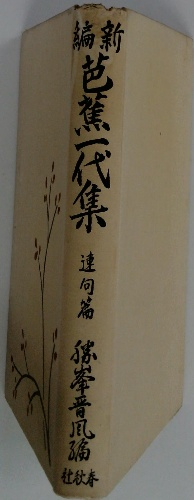 新編
芭蕉一代集
連句篇
勝峯晋風編
春秋社